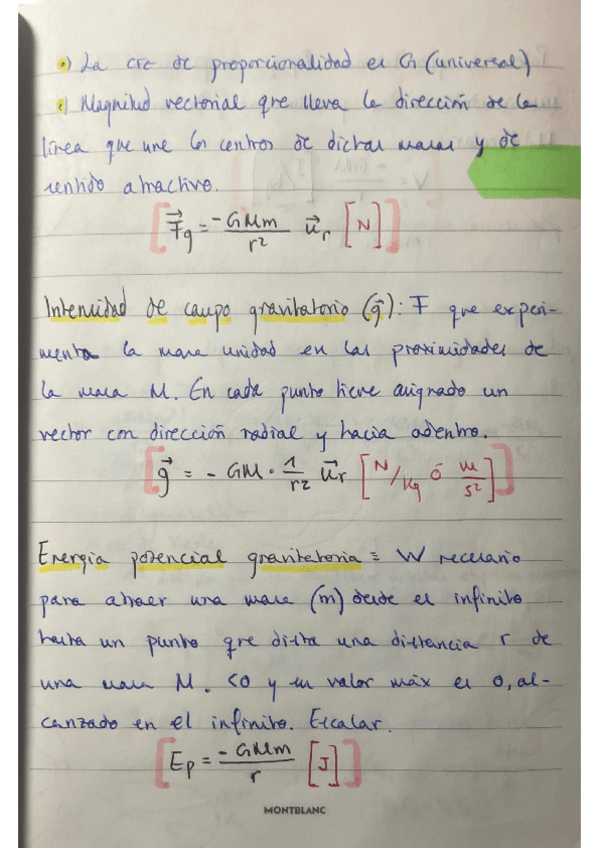 •) La cte de proporcionalidad es G (universal)
•) Magnitud vectorial que lleva la dirección de la
línea que une los centros de dichas masas y de
sentido atractivo.
[F⃗g = -GMm/r² u⃗r [N]]
Intensidad de campo gravitatorio (g⃗): F que experi-
menta la masa unidad en las proximidades de
la masa M. En cada punto tiene asignado un
vector con dirección radial y hacia adentro.
[g⃗ = - GM · 1/r² u⃗r [N/Kg ó m/s²]]
Energía potencial gravitatoria = W necesario
para atraer una masa (m) desde el infinito
hasta un punto que dista una distancia r de
una masa M. <0 y su valor máx es 0, al-
canzado en el infinito. Escalar.
[Ep = -GMm/r [J]]
MONTBLANC